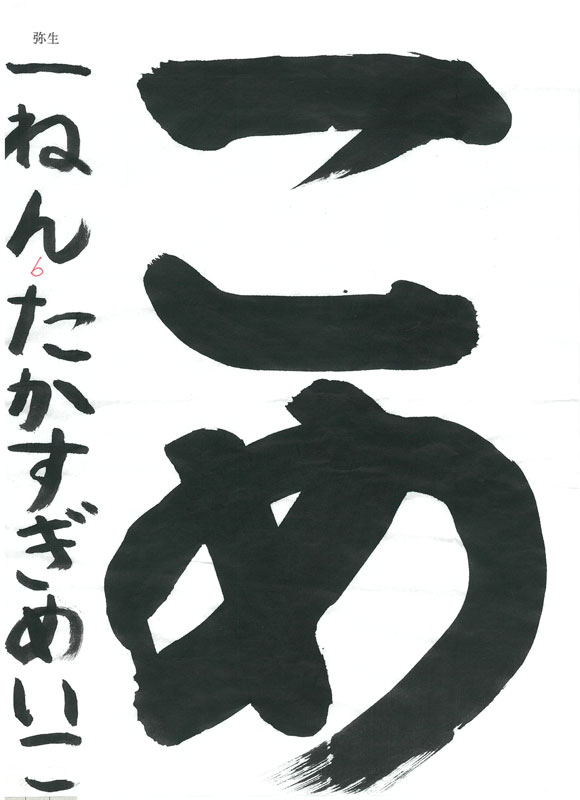 こめ
弥生
一ねんたかすぎめいこ
6